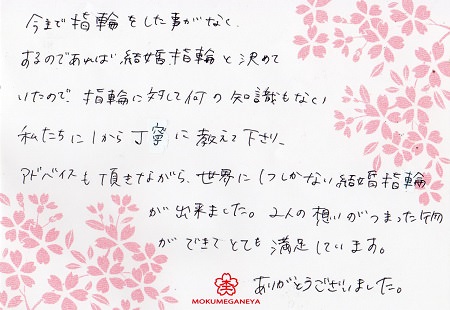 今まで指輪をした事がなく、
するのであれば結婚指輪と決めて
いたので、指輪に対して何の知識もない
私たちに1から丁寧に教えて下さり、
アドベイスも頂きながら、世界に1つしかない結婚指輪
が出来ました。2人の想いがつまった物
ができてとても満足しています。
ありがとうございました。
MOKUMEGANEYA